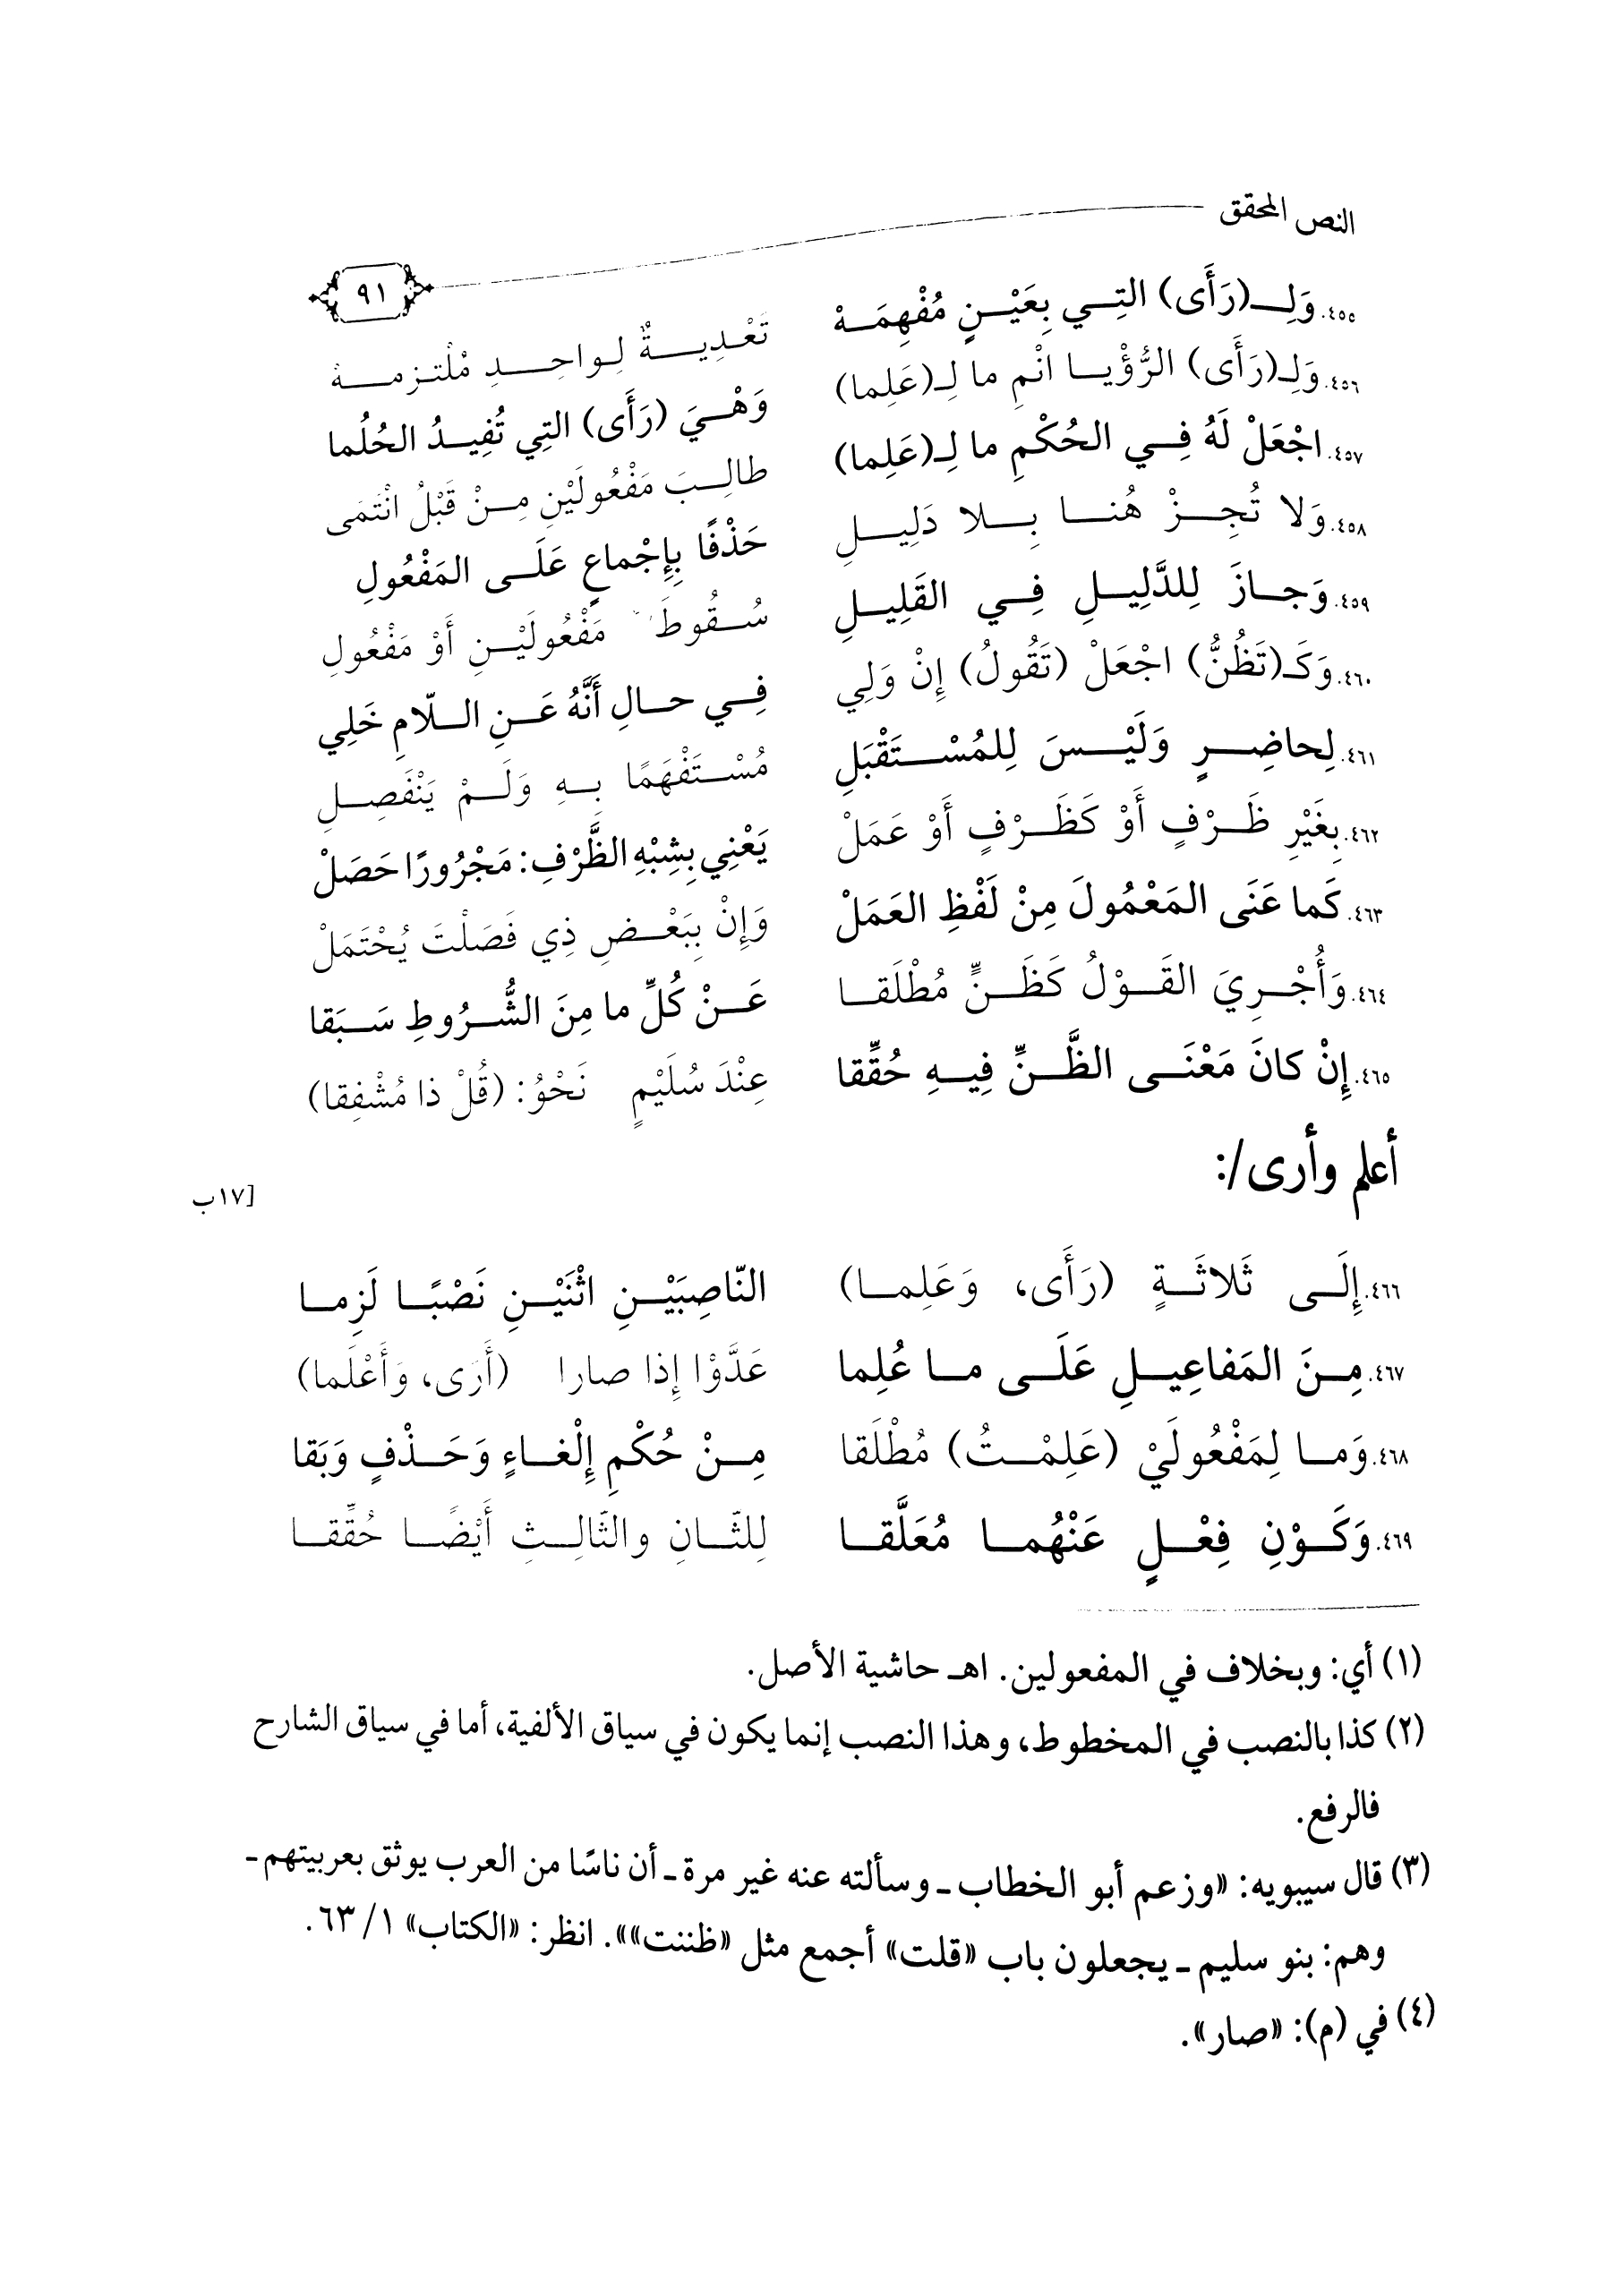 النص المحقق
٩١
٤٥٥. وَلِـ(رَأَى) التِي بِعَيْنٍ مُفْهِمَهْ تَعْدِيةٌ لِواحِدٍ مُلْتزمهْ
٤٥٦. وَلِـ(رَأَى) الرُّؤْيا انْمِ ما لِـ(عَلِما) وَهْيَ (رَأَى) التِي تُفِيدُ الحُلُما
٤٥٧. اجْعَلْ لَهُ فِي الحُكْمِ ما لِـ(عَلِما) طالِبَ مَفْعُولَيْنِ مِنْ قَبْلُ انْتَمَى
٤٥٨. وَلا تُجِزْ هُنا بِلا دَلِيلِ حَذْفًا بِإِجْماعٍ عَلَى المَفْعُولِ
٤٥٩. وَجازَ لِلدَّلِيلِ فِي القَلِيلِ سُقُوطَ مَفْعُولَيْنِ أَوْ مَفْعُولِ
٤٦٠. وَكَـ(تَظُنُّ) اجْعَلْ (تَقُولُ) إِنْ وَلِي فِي حالِ أَنَّهُ عَنِ اللّامِ خَلِي
٤٦١. لِحاضِرٍ وَلَيْسَ لِلمُسْتَقْبَلِ مُسْتَفْهَمًا بِهِ وَلَمْ يَنْفَصِلِ
٤٦٢. بِغَيْرِ ظَرْفٍ أَوْ كَظَرْفٍ أَوْ عَمَلْ يَعْنِي بِشِبْهِ الظَّرْفِ: مَجْرُورًا حَصَلْ
٤٦٣. كَما عَنَى المَعْمُولَ مِنْ لَفْظِ العَمَلْ وَإِنْ بِبَعْضِ ذِي فَصَلْتَ يُحْتَمَلْ
٤٦٤. وَأُجْرِيَ القَوْلُ كَظَنٍّ مُطْلَقا عَنْ كُلِّ ما مِنَ الشُّرُوطِ سَبَقا
٤٦٥. إِنْ كانَ مَعْنَى الظَّنِّ فِيهِ حُقِّقا عِنْدَ سُلَيْمٍ نَحْوُ: (قُلْ ذا مُشْفِقا)
أعلم وأرى/:
[١٧ب
٤٦٦. إِلَى ثَلاثَةٍ (رَأَى، وَعَلِما) النّاصِبَيْنِ اثْنَيْنِ نَصْبًا لَزِما
٤٦٧. مِنَ المَفاعِيلِ عَلَى ما عُلِما عَدَّوْا إِذا صارا (أَرَى، وَأَعْلَما)
٤٦٨. وَما لِمَفْعُولَيْ (عَلِمْتُ) مُطْلَقا مِنْ حُكْمِ إِلْغاءٍ وَحَذْفٍ وَبَقا
٤٦٩. وَكَوْنِ فِعْلٍ عَنْهُما مُعَلَّقا لِلثّانِ والثّالِثِ أَيْضًا حُقِّقا
(١) أي: وبخلاف في المفعولين. اهـ حاشية الأصل.
(٢) كذا بالنصب في المخطوط، وهذا النصب إنما يكون في سياق الألفية، أما في سياق الشارح
فالرفع.
(٣) قال سيبويه: «وزعم أبو الخطاب ـ وسألته عنه غير مرة ـ أن ناسًا من العرب يوثق بعربيتهم ـ
وهم: بنو سليم ـ يجعلون باب «قلت» أجمع مثل «ظننت»». انظر: «الكتاب» ١/ ٦٣.
(٤) في (م): «صار».